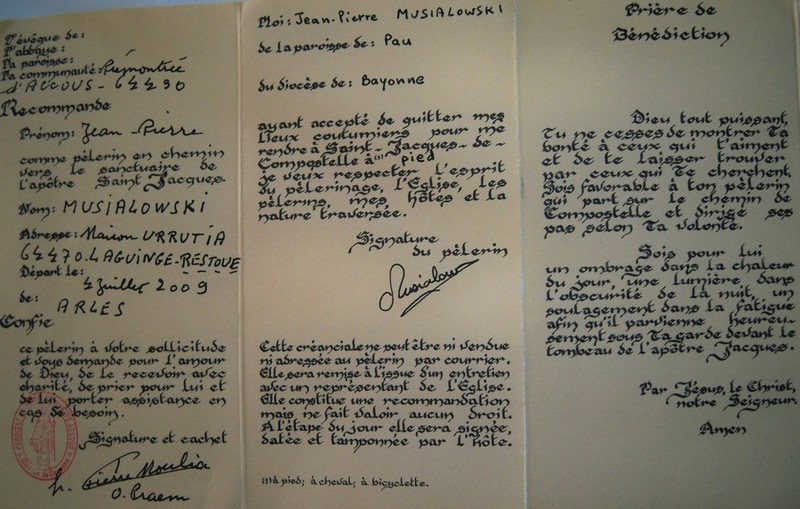 L'évêque de:
L'abbaye:
La paroisse:
La communauté: Prémontrée
d'ACCOUS - 64490
Recommande
Prénom: Jean-Pierre
comme pèlerin en chemin
vers le sanctuaire de
l'apôtre Saint-Jacques.
Nom: MUSIALOWSKI
Adresse: Maison URRUTIA
64470-LAGUINGE-RESTOUE
Départ le:
4 Juillet 2009
de:
ARLES
Confie
ce pèlerin à votre sollicitude
et vous demande pour l'amour
de Dieu, de le recevoir avec
charité, de prier pour lui et
de lui porter assistance en
cas de besoin.
Signature et cachet
Pierre Moulia
O. Praem
Moi: Jean-Pierre MUSIALOWSKI
de la paroisse de: Pau
du diocèse de: Bayonne
ayant accepté de quitter mes
lieux coutumiers pour me
rendre à Saint-Jacques-de-
Compostelle à (1) pied
je veux respecter l'esprit
du pèlerinage, l'Eglise, les
pèlerins, mes hôtes et la
nature traversée.
Signature
du pèlerin
Musialow
Cette créanciale ne peut être ni vendue
ni adressée au pèlerin par courrier.
Elle sera remise à l'issue d'un entretien
avec un représentant de l'Eglise.
Elle constitue une recommandation
mais ne fait valoir aucun droit.
A l'étape du jour elle sera signée,
datée et tamponnée par l'hôte.
(1) à pied; à cheval; à bicyclette.
Prière de
Bénédiction
Dieu tout puissant,
Tu ne cesses de montrer Ta
bonté à ceux qui t'aiment
et de te laisser trouver
par ceux qui Te cherchent,
Sois favorable à ton pèlerin
qui part sur le chemin de
Compostelle et dirige ses
pas selon Ta volonté.
Sois pour lui
un ombrage dans la chaleur
du jour, une lumière dans
l'obscurité de la nuit, un
soulagement dans la fatigue
afin qu'il parvienne heureu-
sement sous Ta garde devant le
tombeau de l'apôtre Jacques.
Par Jésus, le Christ,
notre Seigneur.
Amen